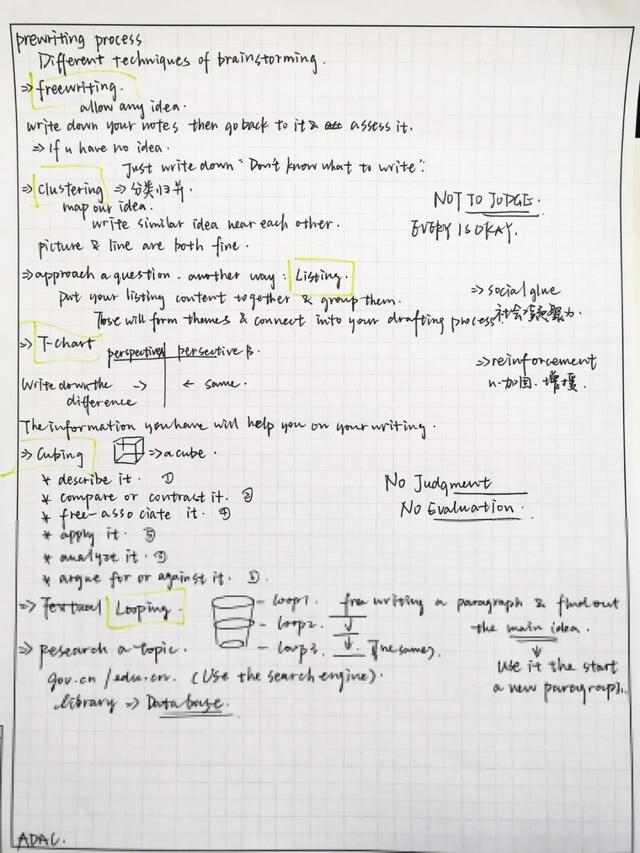 prewriting process
Different techniques of brainstorming.
⇒ freewriting.
allow any idea.
write down your notes then go back to it & assess it.
⇒ If u have no idea.
Just write down "Don't know what to write".
⇒ Clustering ⇒ 分类归并.
map our idea.
write similar idea near each other.
picture & line are both fine.
NOT TO JUDGE.
EVERY IS OKAY.
⇒ approach a question. another way: Listing.
put your listing content together & group them.
Those will form themes & connect into your drafting process
⇒ social glue
社会凝聚力.
⇒ T-chart
perspectives persective B.
Write down the → ← same.
difference
⇒ reinforcement
n.加固. 增援
The information you have will help you on your writing.
⇒ Cubing ⇒ a cube.
* describe it. ①
* compare or contrast it. ②
* free-associate it. ④
* apply it. ⑤
* analyze it. ③
* argue for or against it.
No Judgment
No Evaluation.
⇒ Textual Looping.
loop1.
loop2.
loop3. (The same).
free writing a paragraph & find out
the main idea.
Use it the start
a new paragraph.
⇒ Research a topic.
gov.cn / edu.cn. (Use the search engine).
library ⇒ Database.
ADAC.